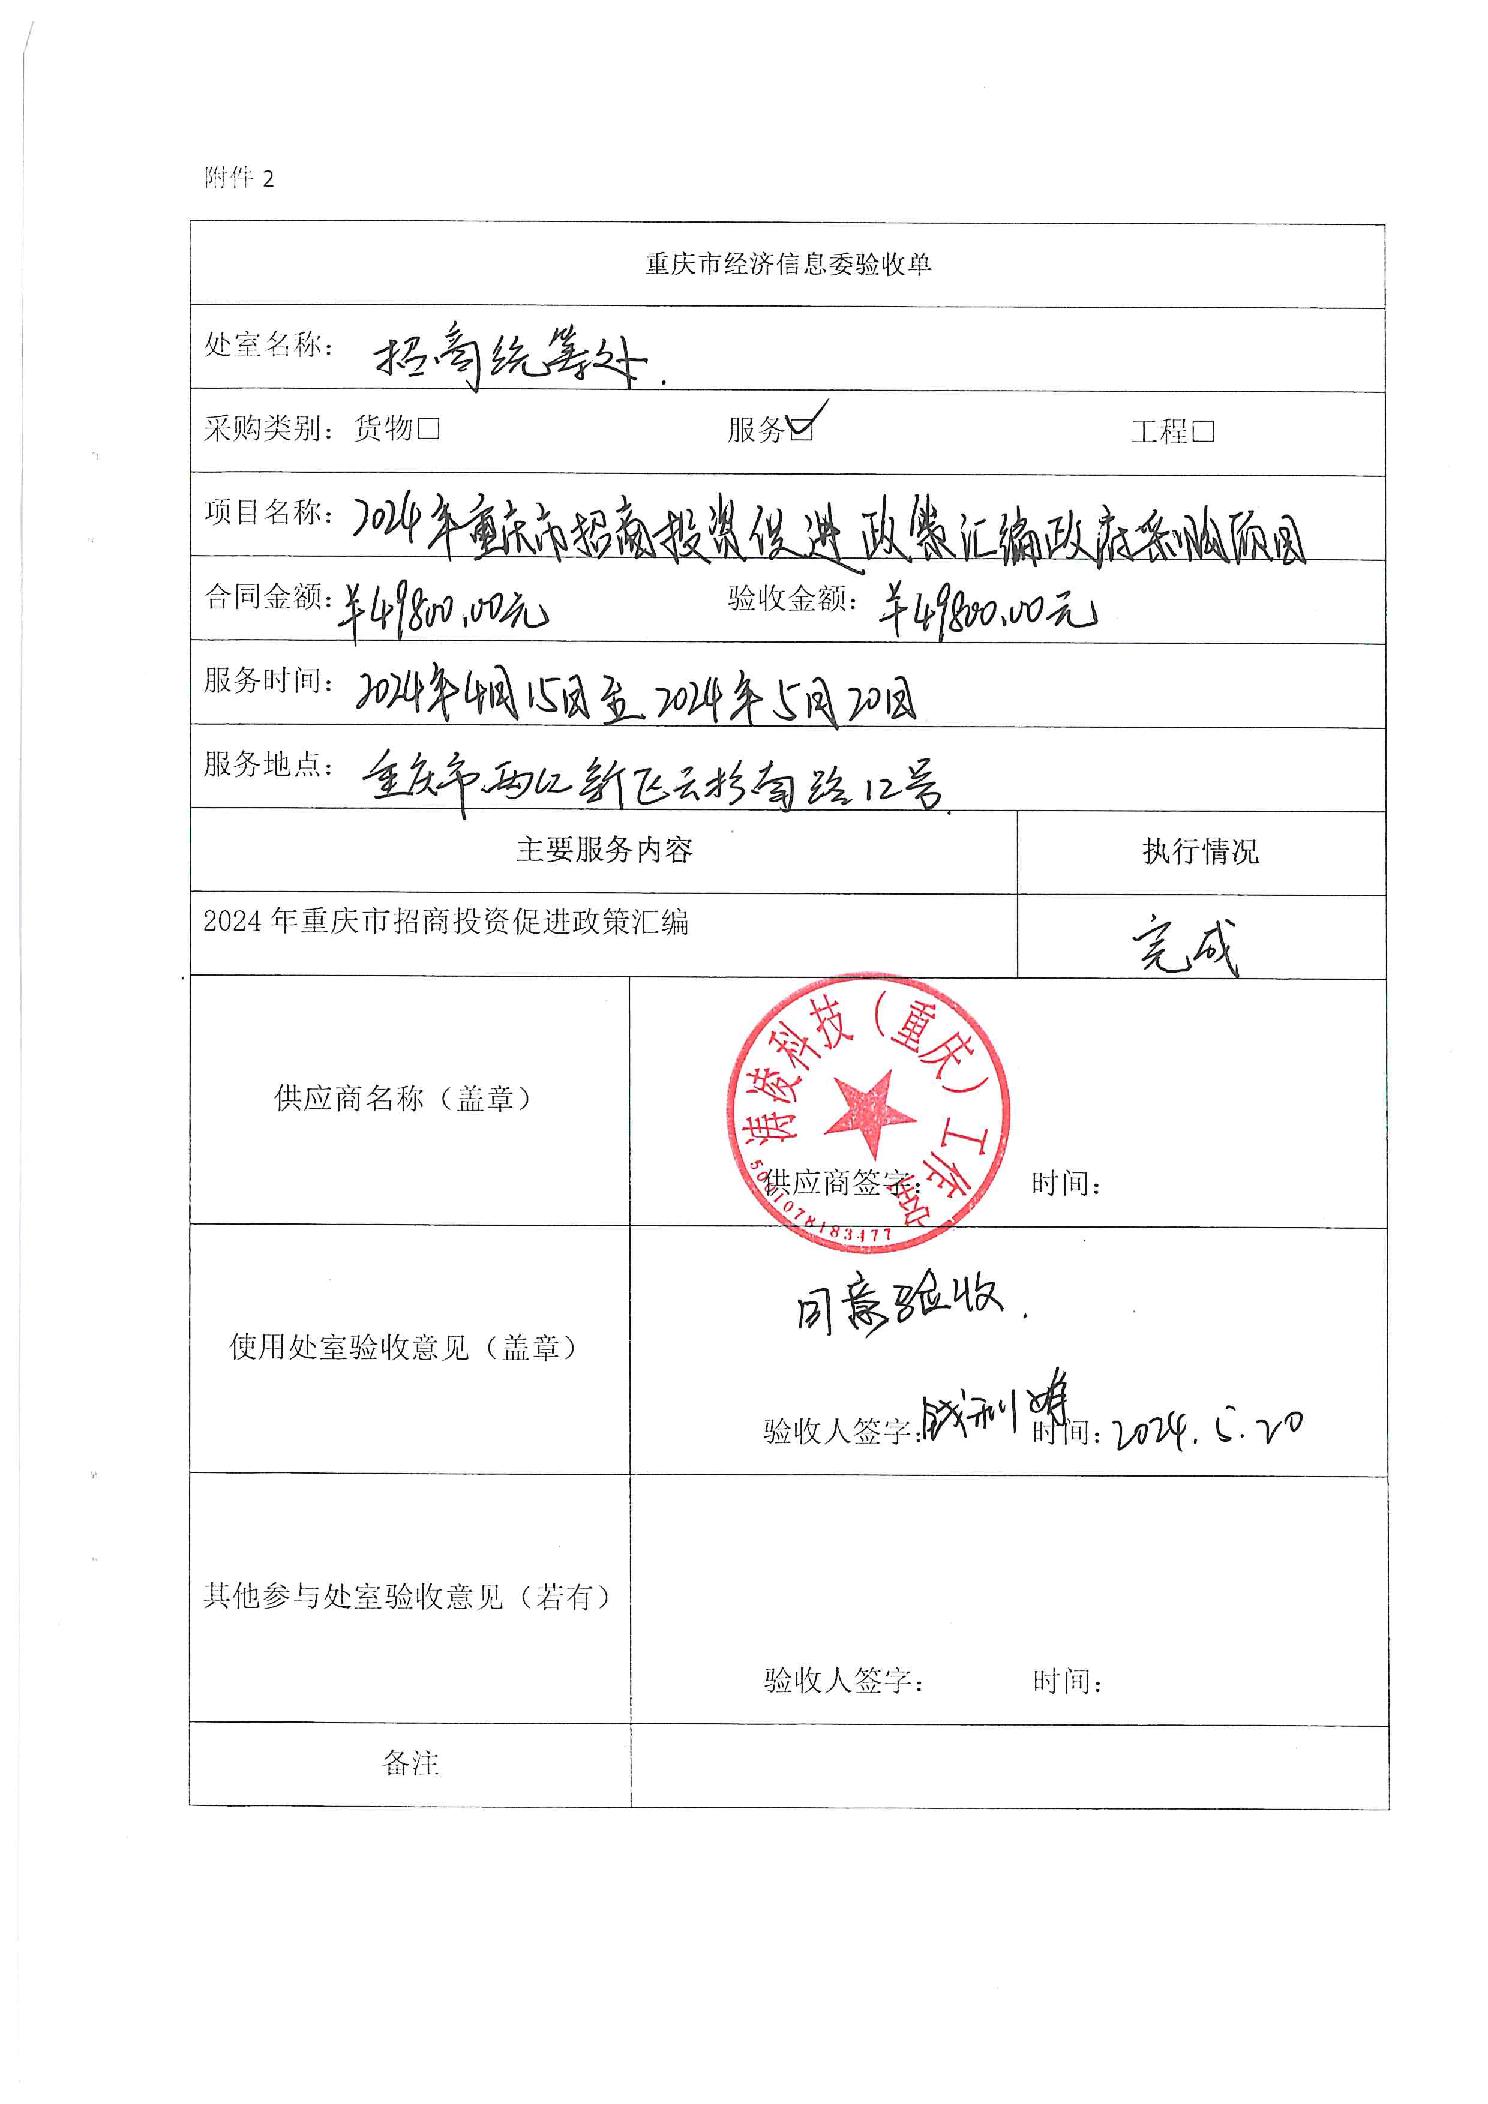 附件 2
重庆市经济信息委验收单
处室名称： 招商统筹处.
采购类别：货物□ 服务☑ 工程□
项目名称：2024年重庆市招商投资促进政策汇编政府采购项目
合同金额：¥49800.00元 验收金额：¥49800.00元
服务时间：2024年4月15日至2024年5月20日
服务地点：重庆市两江新区云杉南路12号
主要服务内容 执行情况
2024年重庆市招商投资促进政策汇编 完成
供应商名称（盖章）
涛凌科技（重庆）工作室
5001078183477
供应商签字： 时间：
使用处室验收意见（盖章）
同意验收.
验收人签字： 时间：2024.5.20
其他参与处室验收意见（若有）
验收人签字： 时间：
备注